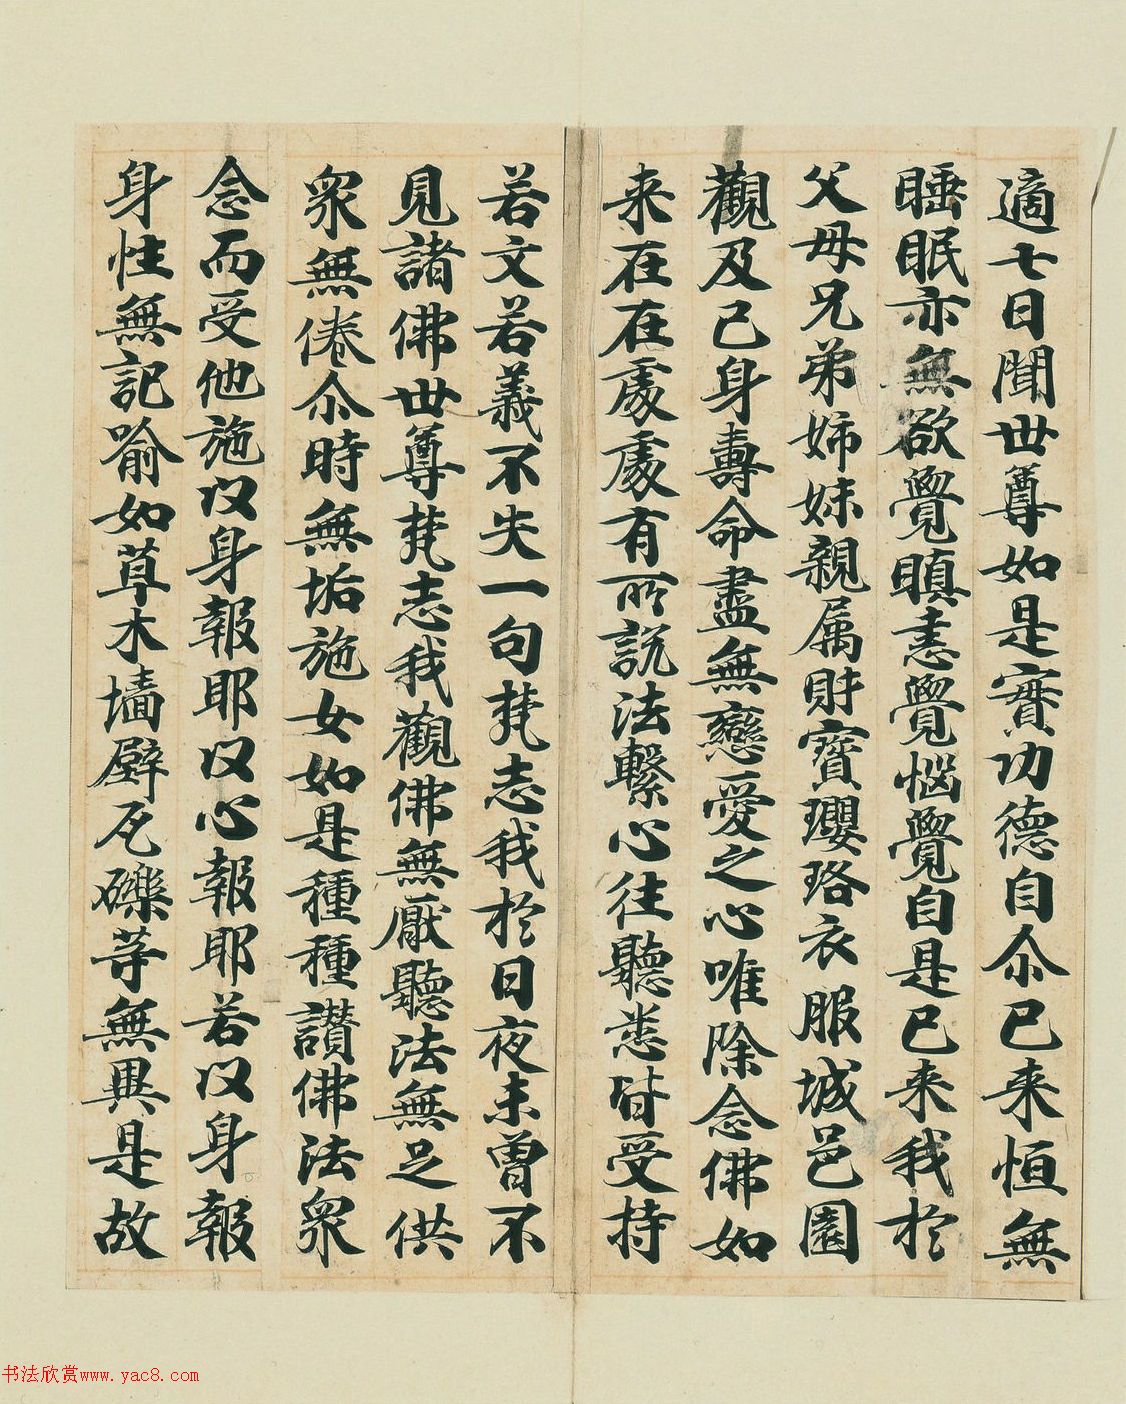 適七日聞世尊如是實功德自尒已来恒無
睡眠亦無欲覺瞋恚覺惱覺自是已来我於
父母兄弟姉妹親属財寳瓔珞衣服城邑園
觀及己身壽命盡無戀愛之心唯除念佛如
来在在處處有所説法繋心往聽悉皆受持
若文若義不失一句梵志我於日夜未曽不
見諸佛世尊梵志我觀佛無厭聽法無足供
衆無倦尒時無垢施女如是種種讃佛法衆
念而受他施以身報耶以心報耶若以身報
身性無記喻如草木墙壁瓦礫等無異是故
书法欣赏www.yac8.com